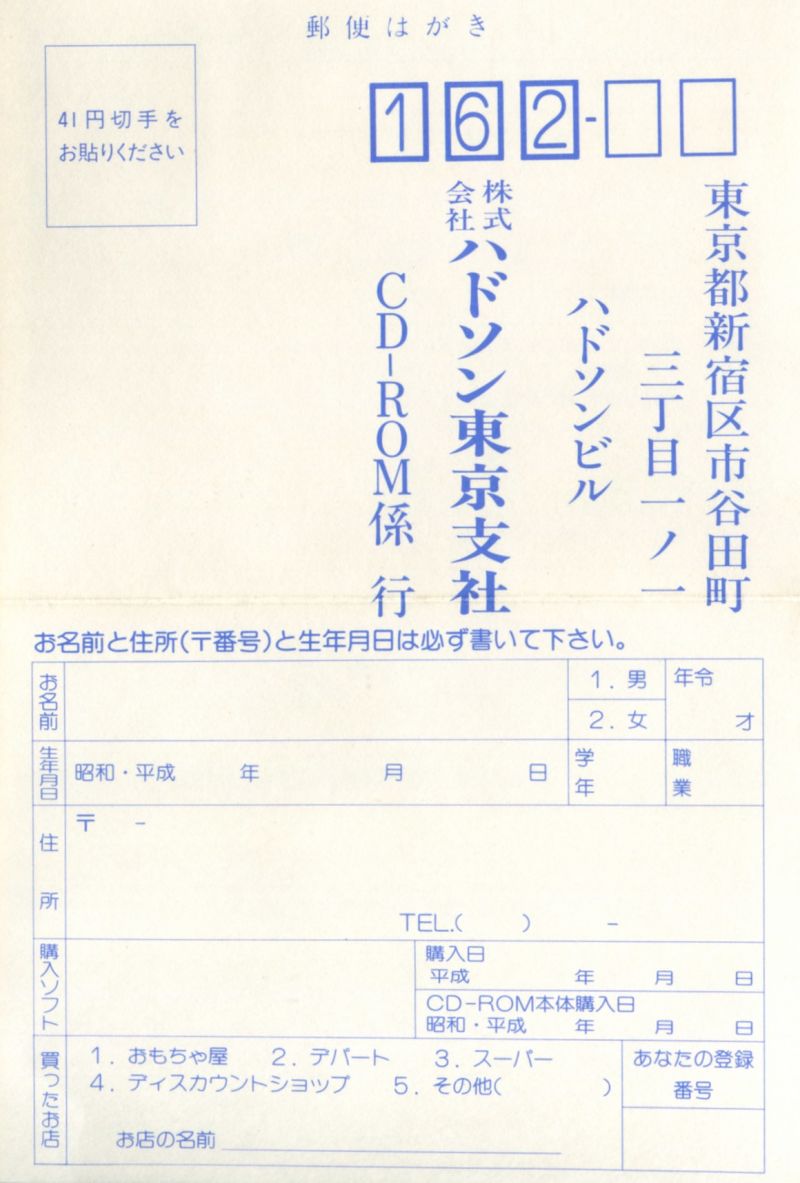 郵便はがき
41円切手を
お貼りください
162-
東京都新宿区市谷田町
三丁目一ノ一
ハドソンビル
株式会社ハドソン東京支社
CD-ROM係 行
お名前と住所(〒番号)と生年月日は必ず書いて下さい。
お名前
1. 男
2. 女
年令
才
生年月日
昭和・平成 年 月 日
学年
職業
住所
〒 -
TEL.( ) -
購入ソフト
購入日
平成 年 月 日
CD-ROM本体購入日
昭和・平成 年 月 日
買ったお店
1. おもちゃ屋 2. デパート 3. スーパー
4. ディスカウントショップ 5. その他( )
お店の名前
あなたの登録
番号